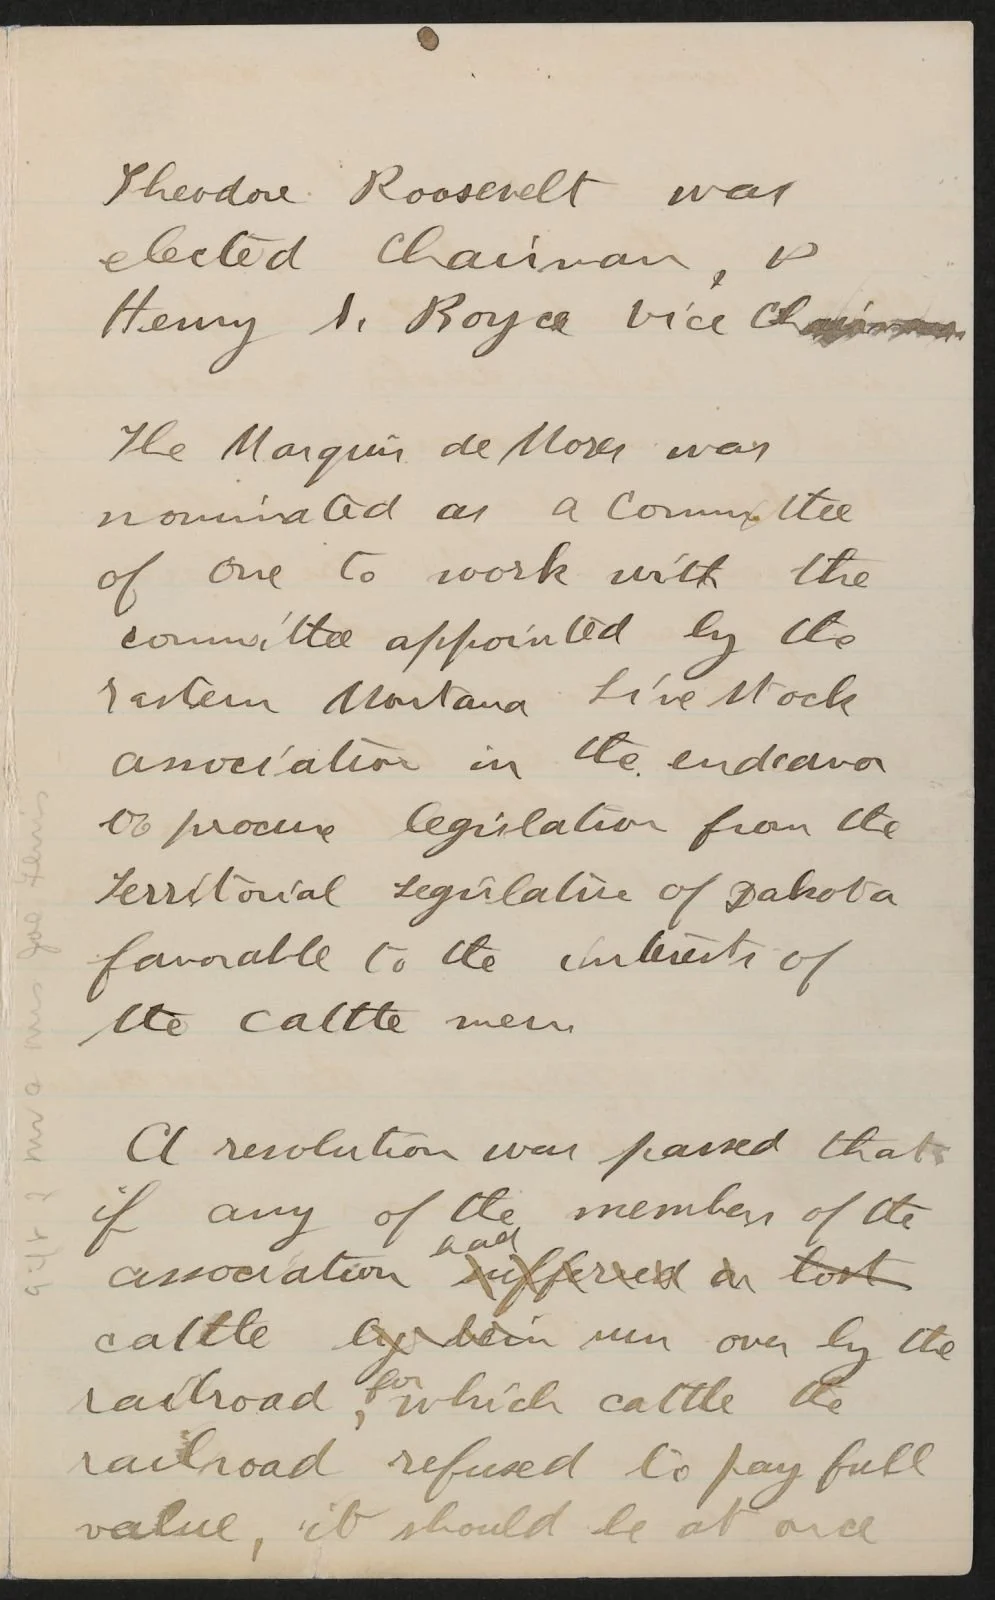 Theodore Roosevelt was
elected Chairman, &
Henry S. Royce Vice Chairman
The Marquis de Mores was
nominated as a Committee
of one to work with the
committee appointed by the
Eastern Montana Live Stock
association in the endeavor
to procure legislation from the
Territorial Legislature of Dakota
favorable to the interests of
the cattle men
A resolution was passed that
if any of the members of the
had
association suffered in lost
cattle by run over by the
for
railroad, which cattle the
railroad refused to pay full
value, it should be at once
gift of Mrs Joe Ferris